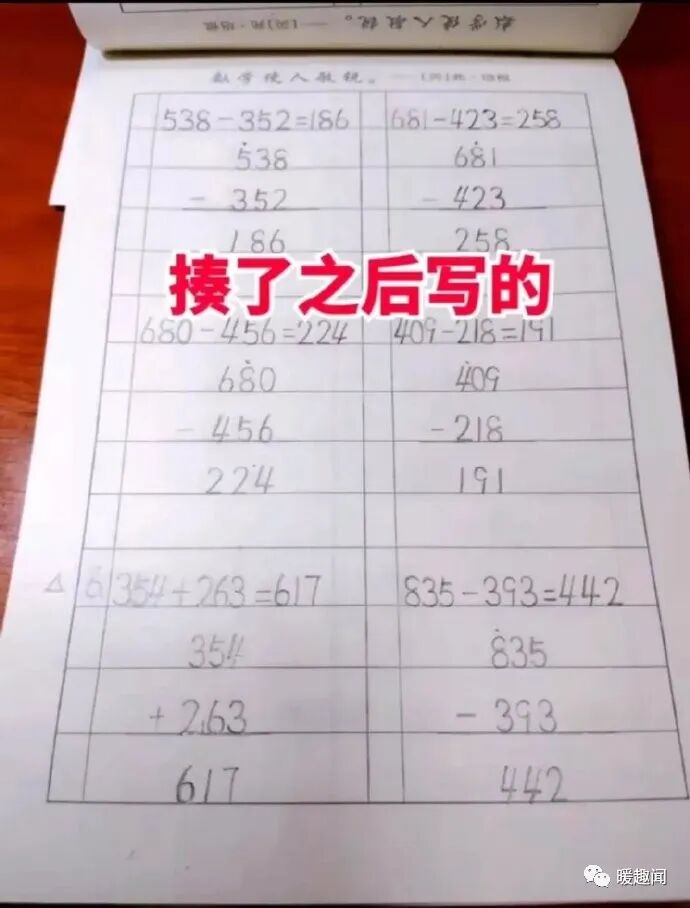 数学使人敏锐。
数学使人敏锐。
538-352=186 681-423=258
538 681
- 352 - 423
186 258
揍了之后写的
680-456=224 409-218=191
680 409
-456 -218
224 191
6 354+263=617 835-393=442
354 835
+263 -393
617 442
暖趣闻